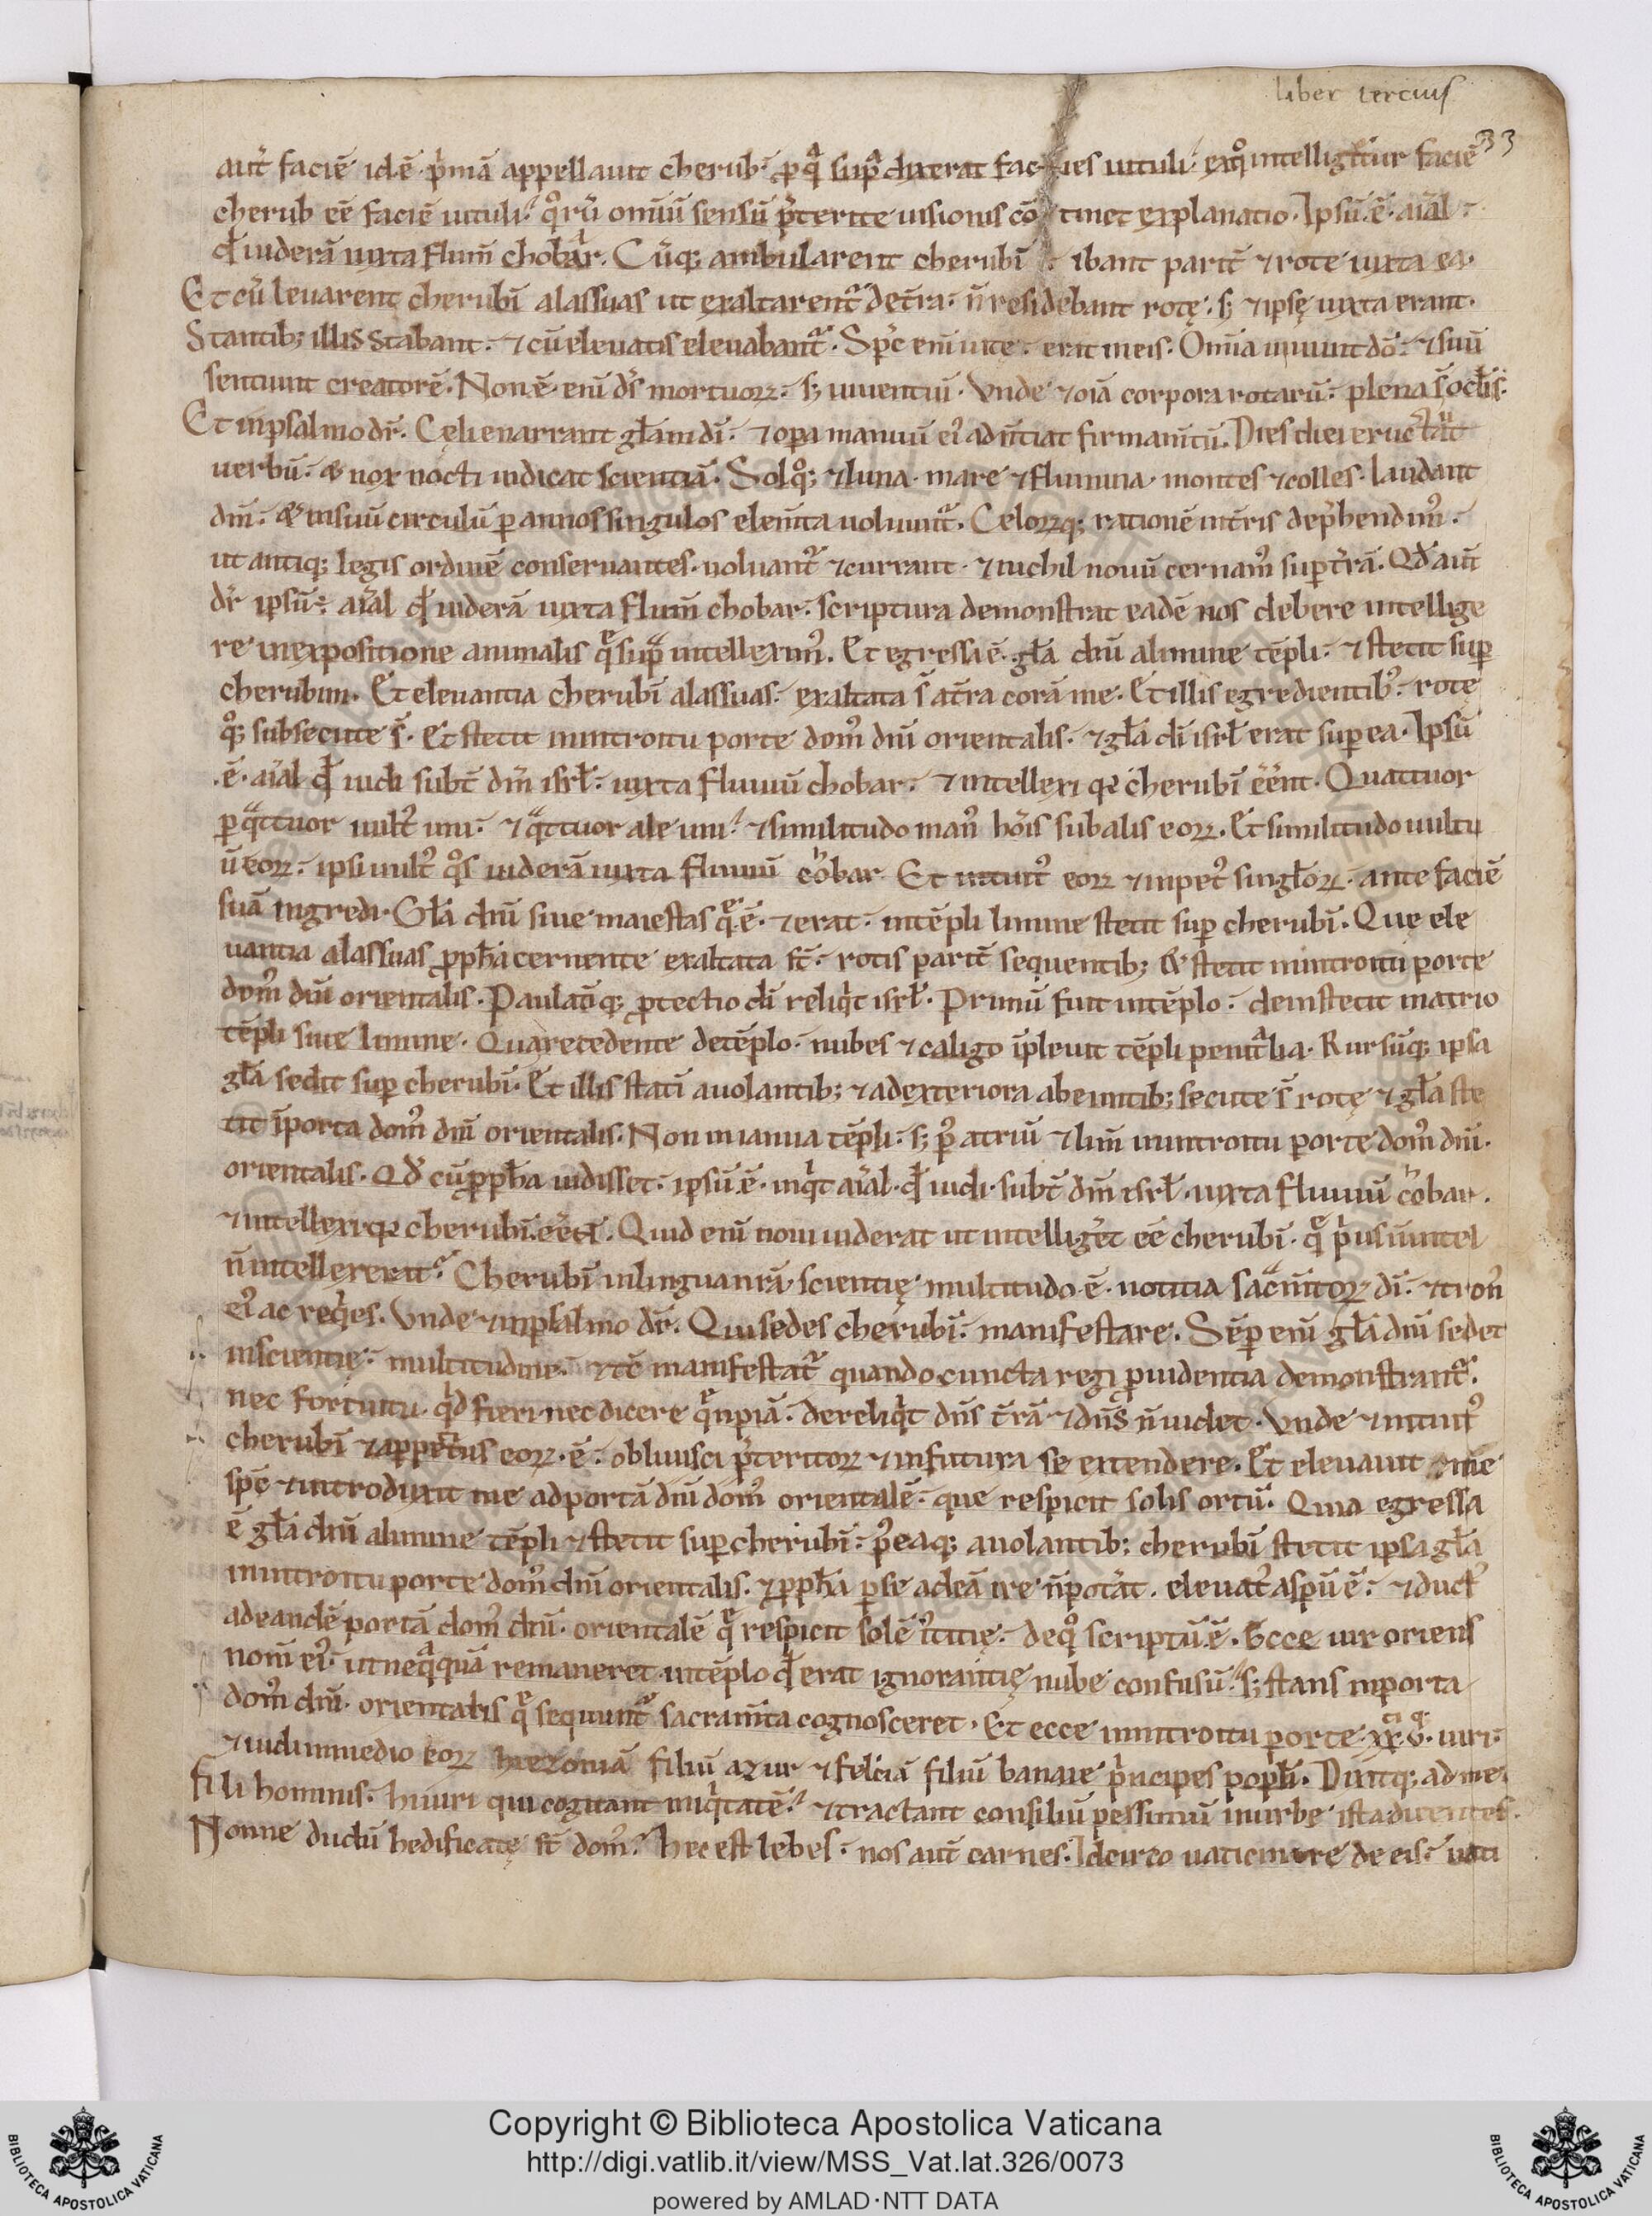 liber tercius
33
aut̄ faciē id.ē. p̄mā appellauit cherub. ꝓ qͣ supͣ dixerat facies uituli. ex qͦ intelligitur faciē
cherub eē faciē uituli. qͦrū omniū sensū p̄terite uisionis cōtinet explanatio. Ipsū.ē. aīal.
qd̄ uiderā iuxta flum̄ chobar. Cūq; ambularent cherubī. ibant parit̄ ⁊ rote iuxta ea.
Et cū leuarent cherubī alas suas ut exaltarent̄ de t̄ra. n̄ residebant rotę. s; ⁊ ipsę iuxta erant.
Stantib; illis stabant. ⁊ cū eleuatis eleuabant̄. Sp̄c eni uite. erat in eis. Om̄ia uiuunt dō. ⁊ suū
sentiunt creatorē. Non.ē. eni d̄s mortuoꝝ. s; uiuentiū. Vnde ⁊ oīa corpora rotarū. plena s̄ oclīs.
Et in psalmo dr̄. Cęli enarrant gl̄am dī. ⁊ opa manuū ei' adn̄tiat firmam̄tū. Dies diei eructat
uerbū. & nox nocti indicat scientiā. Solqͦ; ⁊ luna. mare ⁊ flumina. montes ⁊ colles. laudant
dn̄m. & in suū circulū p annos singulos elem̄ta uoluunt̄. Celoꝝq; rationē int̄ris dep̄hendim'.
ut antiq; legis ordinē conseruantes. uoluant̄ ⁊ currant. ⁊ nichil nouū cernam' sup t̄rā. Qd̄ aut̄
dr̄ ipsū.ē. aīal qd̄ uiderā iuxta flum̄ chobar. scriptura demonstrat eadē nos debere intellige
re in expositione animalis q̄ supͣ intellexim'. Et egressa.ē. gl̄a dn̄i a limine tēpli. ⁊ stetit sup
cherubim. Et eleuantia cherubī alas suas. exaltata s̄ a t̄ra corā me. Et illis egredientib'. rotę
qͦ; subsecute s̄. Et stetit in introitu porte dom' dn̄i orientalis. ⁊ gl̄a dī isrl̄ erat sup ea. Ipsū
.ē. aīal qd̄ uidi subt̄ dm̄ isrl̄. iuxta fluuiū chobar. ⁊ intellexi qͥ cherubī eēnt. Quattuor
p qͣttuor uult' uni. ⁊ qͣttuor ale uni. ⁊ similitudo man' hōis sub alis eoꝝ. Et similitudo uultu
ū eoꝝ. ipsi uult' qͦs uiderā iuxta fluuiū cobar. Et intuit' eoꝝ ⁊ impet' singl̄oꝝ. ante faciē
suā ingredi. Gl̄a dn̄i siue maiestas q̄.ē. ⁊ erat. in tēpli limine stetit sup cherubī. Quę ele
uantia alas suas ꝓph̄a cernente exaltata st̄. rotis parit̄ sequentib; & stetit in introitu porte
dom' dn̄i orientalis. Paulatīq; ꝓtectio dī reliqͥt isrl̄. Primū fuit in tēplo. dein stetit in atrio
tēpli siue limine. Qua recedente de tēplo. nubes ⁊ caligo īpleuit tēpli penitͣlia. Rursūq; ipsa
gl̄a sedit sup cherubī. Et illis statī auolantib; ⁊ ad exteriora abeuntib; secute s̄ rotę ⁊ gl̄a ste
tit ī porta dom' dn̄i orientalis. Non in ianua tēpli. s; p' atriū ⁊ lim̄ in introitu porte dom' dn̄i.
orientalis. Qd̄ cū ꝓph̄a uidisset. ipsū.ē. inqͥt aīal. qd̄ uidi. subt̄ dm̄ isrl̄. iuxta fluuiū cobar.
⁊ intellexi qͥ cherubī eēnt. Quid eni noui uiderat ut intelligēt eē cherubī. q̄ pͥus
n̄ intellexerit. Cherubī in lingua nrā. scientię multitudo.ē. notitia sacm̄toꝝ dī. ⁊ tron'
ei' ac reqͥes. Vnde ⁊ in psalmo dr̄. Qui sedes cherubī. manifestare. Sēp eni gl̄a dn̄i sedet
in scientię. multitudine. ⁊ tc̄ manifestat̄ quando cuncta regi ꝓuidentia demonstrant̄.
nec fortuitu qͥd fieri nec dicere q̄ īpiā. dereliqͥt dn̄s t̄rā ⁊ dn̄s n̄ uidet. Vnde ⁊ intuit'
cherubī ⁊ appetitus eoꝝ.ē. obliuisci p̄teritoꝝ ⁊ in futura se extendere. Et eleuauit me
sp̄c ⁊ introduxit me ad portā dn̄i dom' orientalē. que respicit solis ortū. Quia egressa
ē gl̄a dn̄i a limine tēpli ⁊ stetit sup cherubī. p' eaq; auolantib; cherubī stetit ipsa gl̄a
in introitu porte dom' dn̄i orientalis. ⁊ ꝓph̄a p se ad eā ire n̄ potāt. eleuat' a sp̄u ē. ⁊ duct'
ad eandē portā dom' dn̄i. orientalē q̄ respicit solē i'titię. de qͦ scriptū.ē. Ecce uir oriens
nom̄ ei'. ut neqͣquā remaneret in tēplo qd̄ erat ignorantię nube confusū. s; stans in porta
dom' dn̄i. orientalis q̄ sequunt̄ sacram̄ta cognosceret. Et ecce in introitu porte .xx.v. uiri.
⁊ uidi in medio eoꝝ hiezoniā filiū azur ⁊ felciā filiū banaie pͥncipes popl̄i. Dixitq; ad me.
fili hominis. hi uiri qui cogitant iniqͥtatē. ⁊ tractant consiliū pessimū in urbe ista dicentes.
Nonne dudū hedificatę st̄ dom'. Hec est lebes. nos aut̄ carnes. Idcirco uaticinare de eis. uati
Copyright © Biblioteca Apostolica Vaticana
http://digi.vatlib.it/view/MSS_Vat.lat.326/0073
powered by AMLAD·NTT DATA
BIBLIOTECA APOSTOLICA VATICANA
BIBLIOTECA APOSTOLICA VATICANA